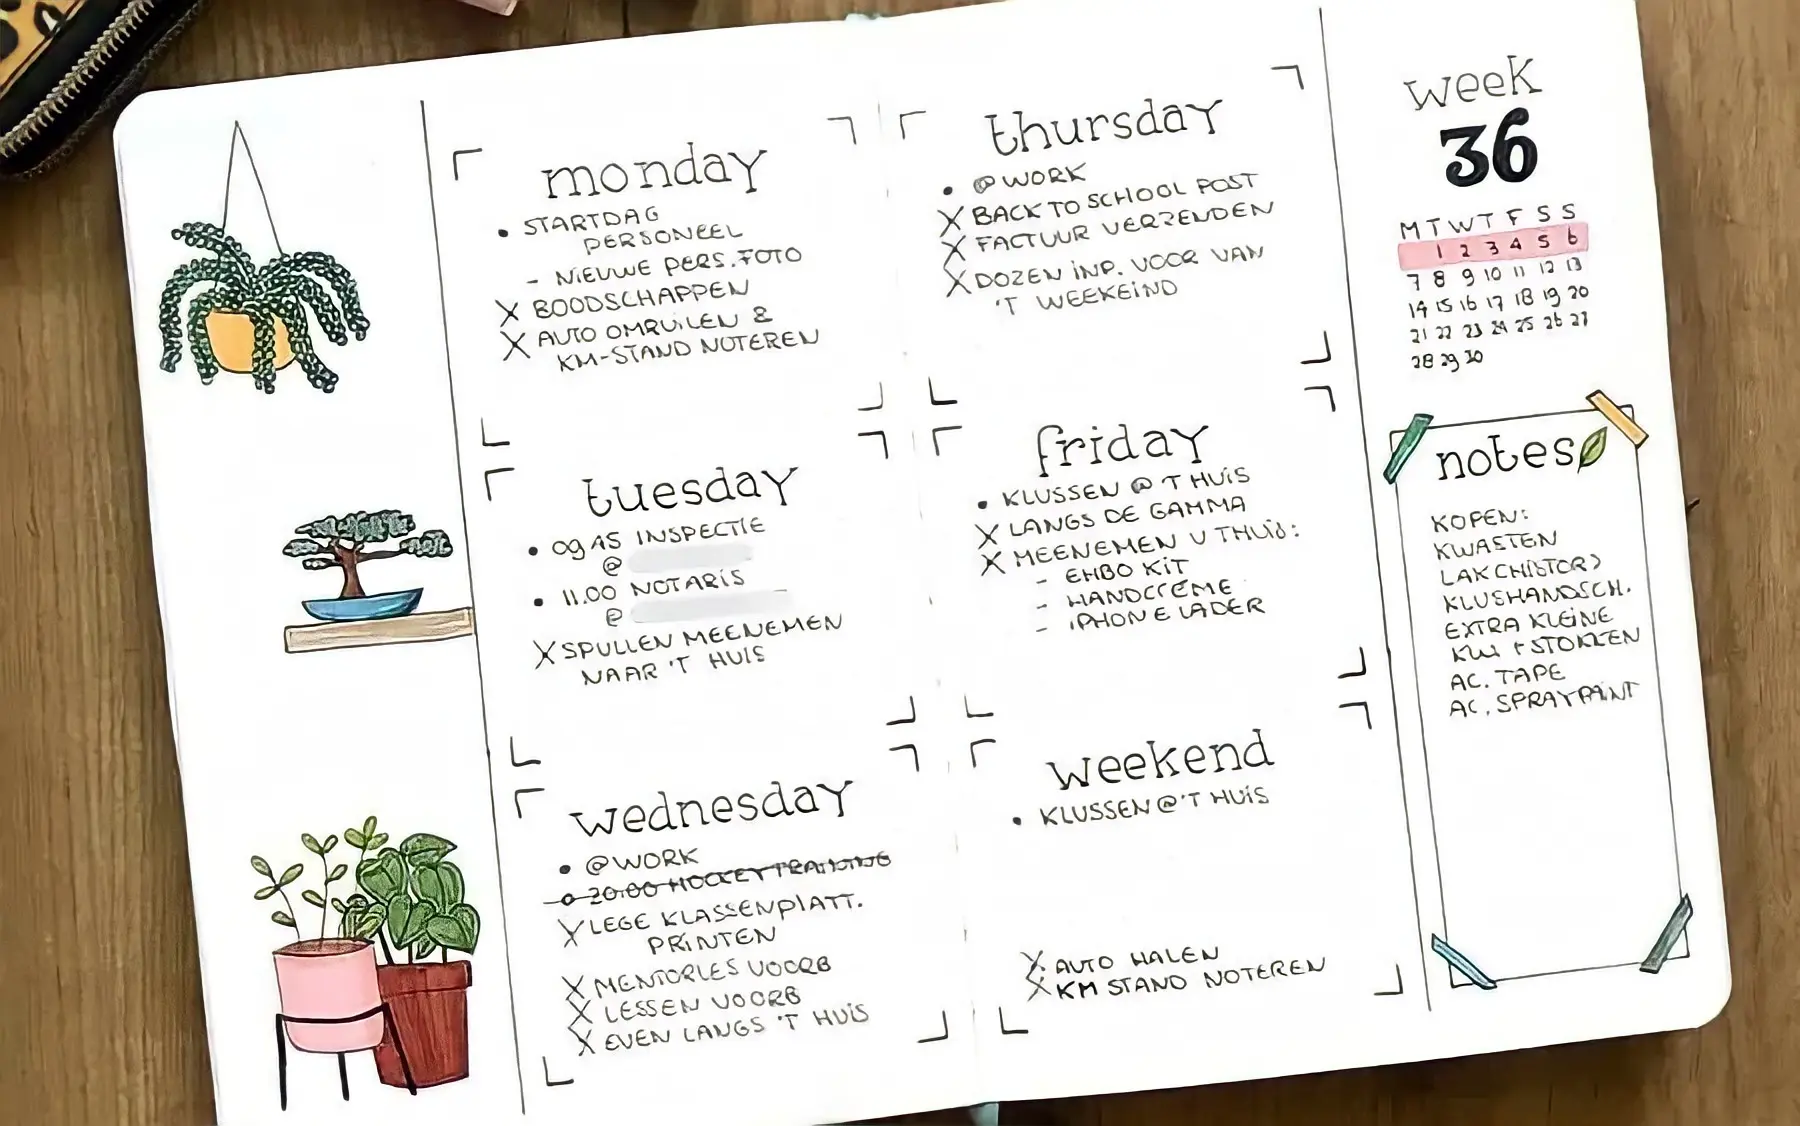 monday
• STARTDAG
PERSONEEL
- NIEUWE PERS. FOTO
X BOODSCHAPPEN
X AUTO OMRUILEN &
KM-STAND NOTEREN
tuesday
• 09.45 INSPECTIE
@
• 11.00 NOTARIS
@
X SPULLEN MEENEMEN
NAAR 'T HUIS
wednesday
• @WORK
20:00 HOCKEYTRAINING
X LEGE KLASSENPLATT.
PRINTEN
X MENTORLES VOORB
X LESSEN VOORB
X EVEN LANGS 'T HUIS
thursday
• @WORK
X BACK TO SCHOOL POST
X FACTUUR VERZENDEN
X DOZEN INP. VOOR VAN
'T WEEKEIND
friday
• KLUSSEN @ 'T HUIS
X LANGS DE GAMMA
X MEENEMEN V THUIS:
- EHBO KIT
- HANDCRÈME
- IPHONE LADER
weekend
• KLUSSEN @ 'T HUIS
X AUTO HALEN
X KM STAND NOTEREN
week
36
M T W T F S S
1 2 3 4 5 6
7 8 9 10 11 12 13
14 15 16 17 18 19 20
21 22 23 24 25 26 27
28 29 30
notes
KOPEN:
KWASTEN
KLUSHANDSCH.
EXTRA KLEINE
+ STOKKEN
AC. TAPE
AC. SPRAYPAINT